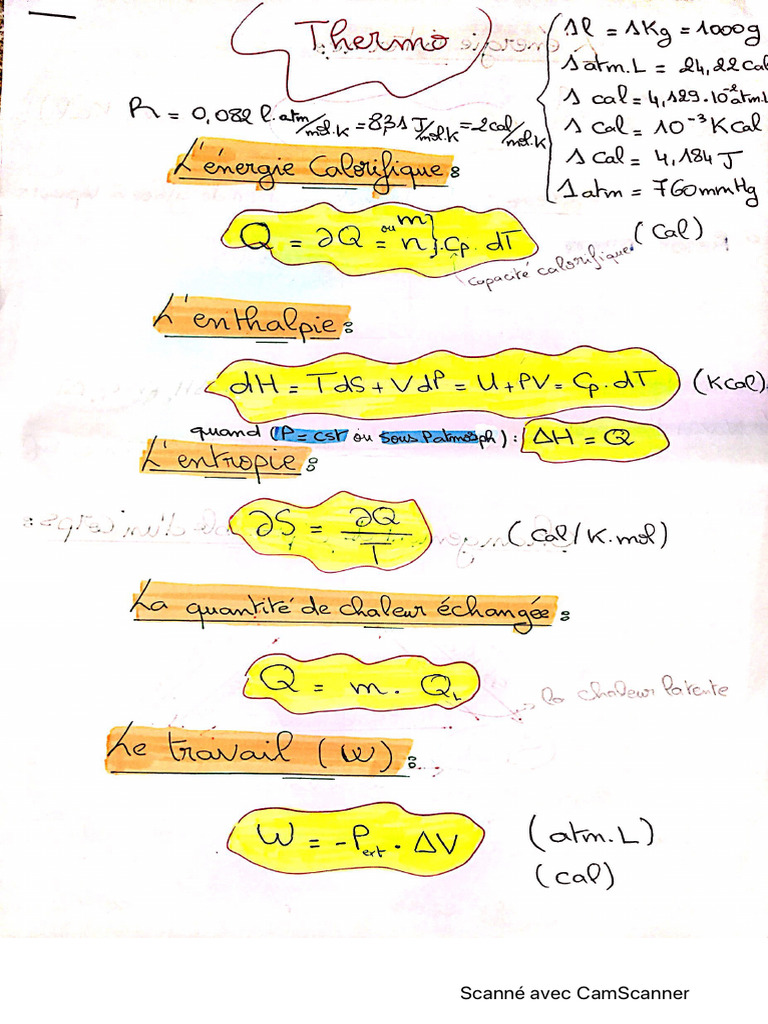 Thermo
1l = 1Kg = 1000g
1 atm.L = 24,22 Cal
1 cal = 4,129.10⁻² atm.L
1 cal = 10⁻³ Kcal
1 cal = 4,184 J
1 atm = 760 mmHg
R = 0,082 l.atm/mol.K = 8,31 J/mol.K = 2cal/mol.K
L'énergie Calorifique :
Q = ∂Q = ou m n } . Cp . dT (Cal)
capacité calorifique
L'enthalpie :
dH = TdS + VdP = U + PV = Cp . dT (Kcal)
quand (P = cst ou sous Patmosph) : ΔH = Q
L'entropie :
∂S = ∂Q / T (Cal/K.mol)
La quantité de chaleur échangée :
Q = m . QL
la chaleur latente
Le travail (W) :
W = -Pext . ΔV (atm.L)
(cal)
Scanné avec CamScanner